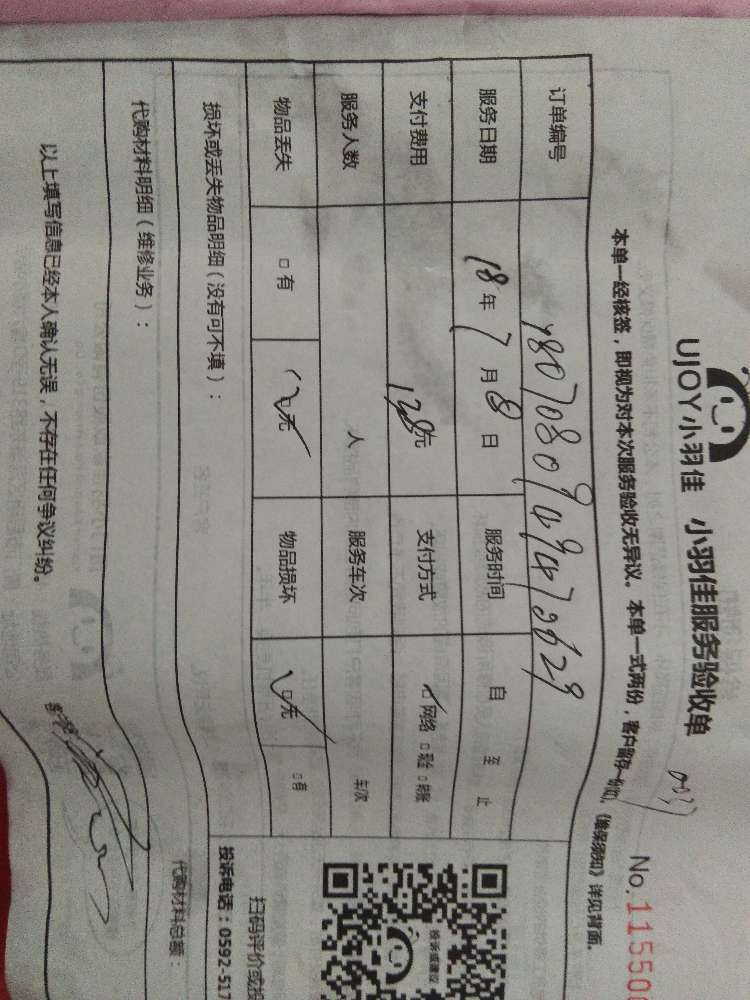 UJOY小羽佳 小羽佳服务验收单
No.11550
本单一经核签，即视为对本次服务验收无异议。本单一式两份，客户留存一份，《维保须知》详见背面。
订单编号
服务日期 18年7月8日 服务时间 自 至 止
支付费用 128元 支付方式 ✓网络 □现金 □转账
服务人数 人 服务车次 车次
物品丢失 □有 □无✓ 物品损坏 ✓□无 □有
损坏或丢失物品明细（没有可不填）：
代购材料明细（维修业务）： 代购材料总额：
以上填写信息已经本人确认无误，不存在任何争议纠纷。
投诉或建议
扫码评价或投
投诉电话：0592-517